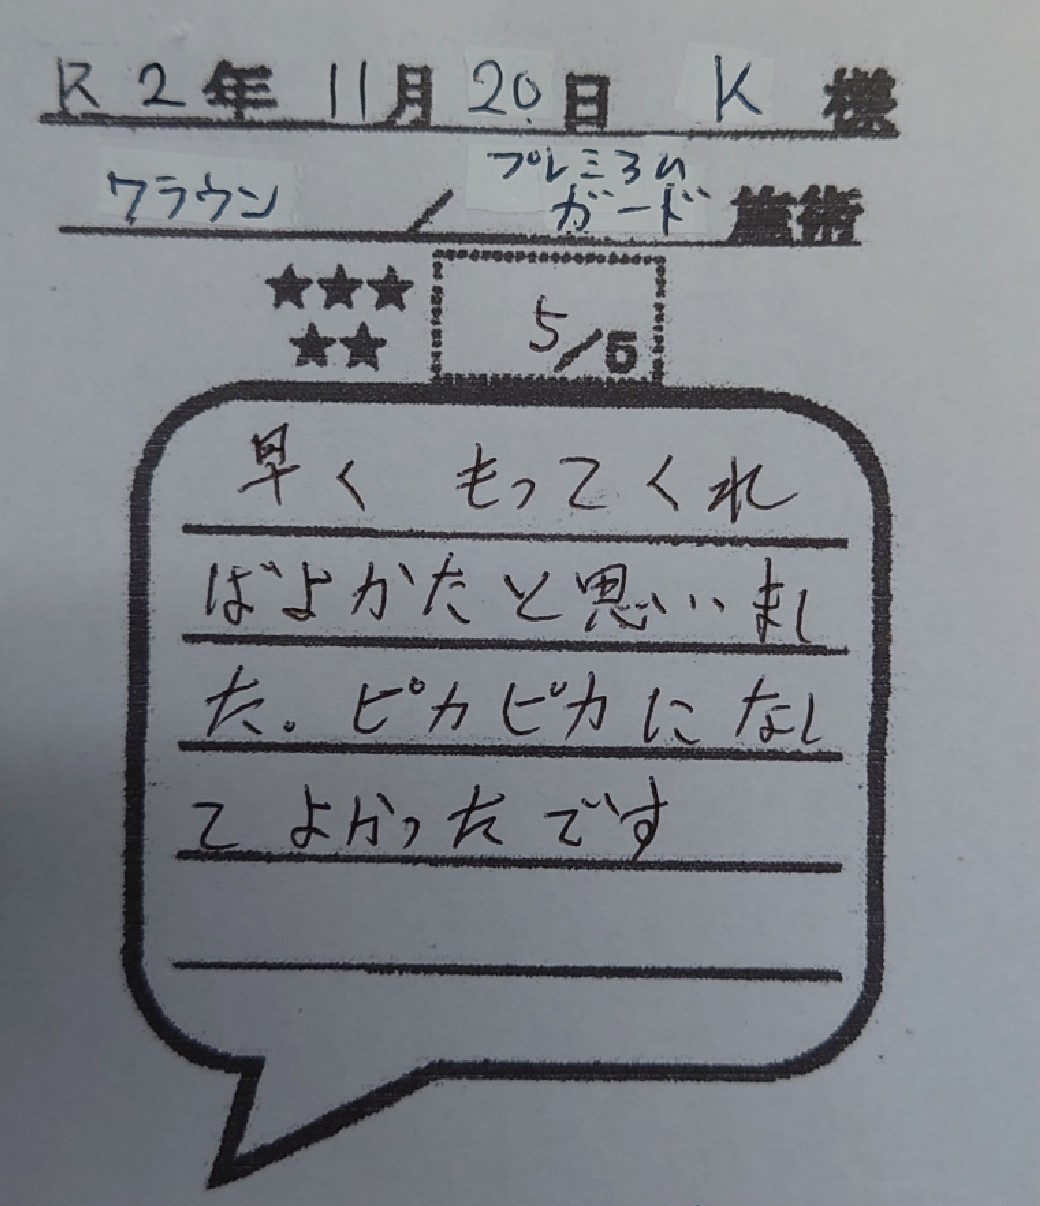 R2年11月20日 K 様
クラウン / プレミアム
ガード 施術
★★★
★★ 5/5
早く もってくれ
ばよかたと思いまし
た。ピカピカになし
てよかったです